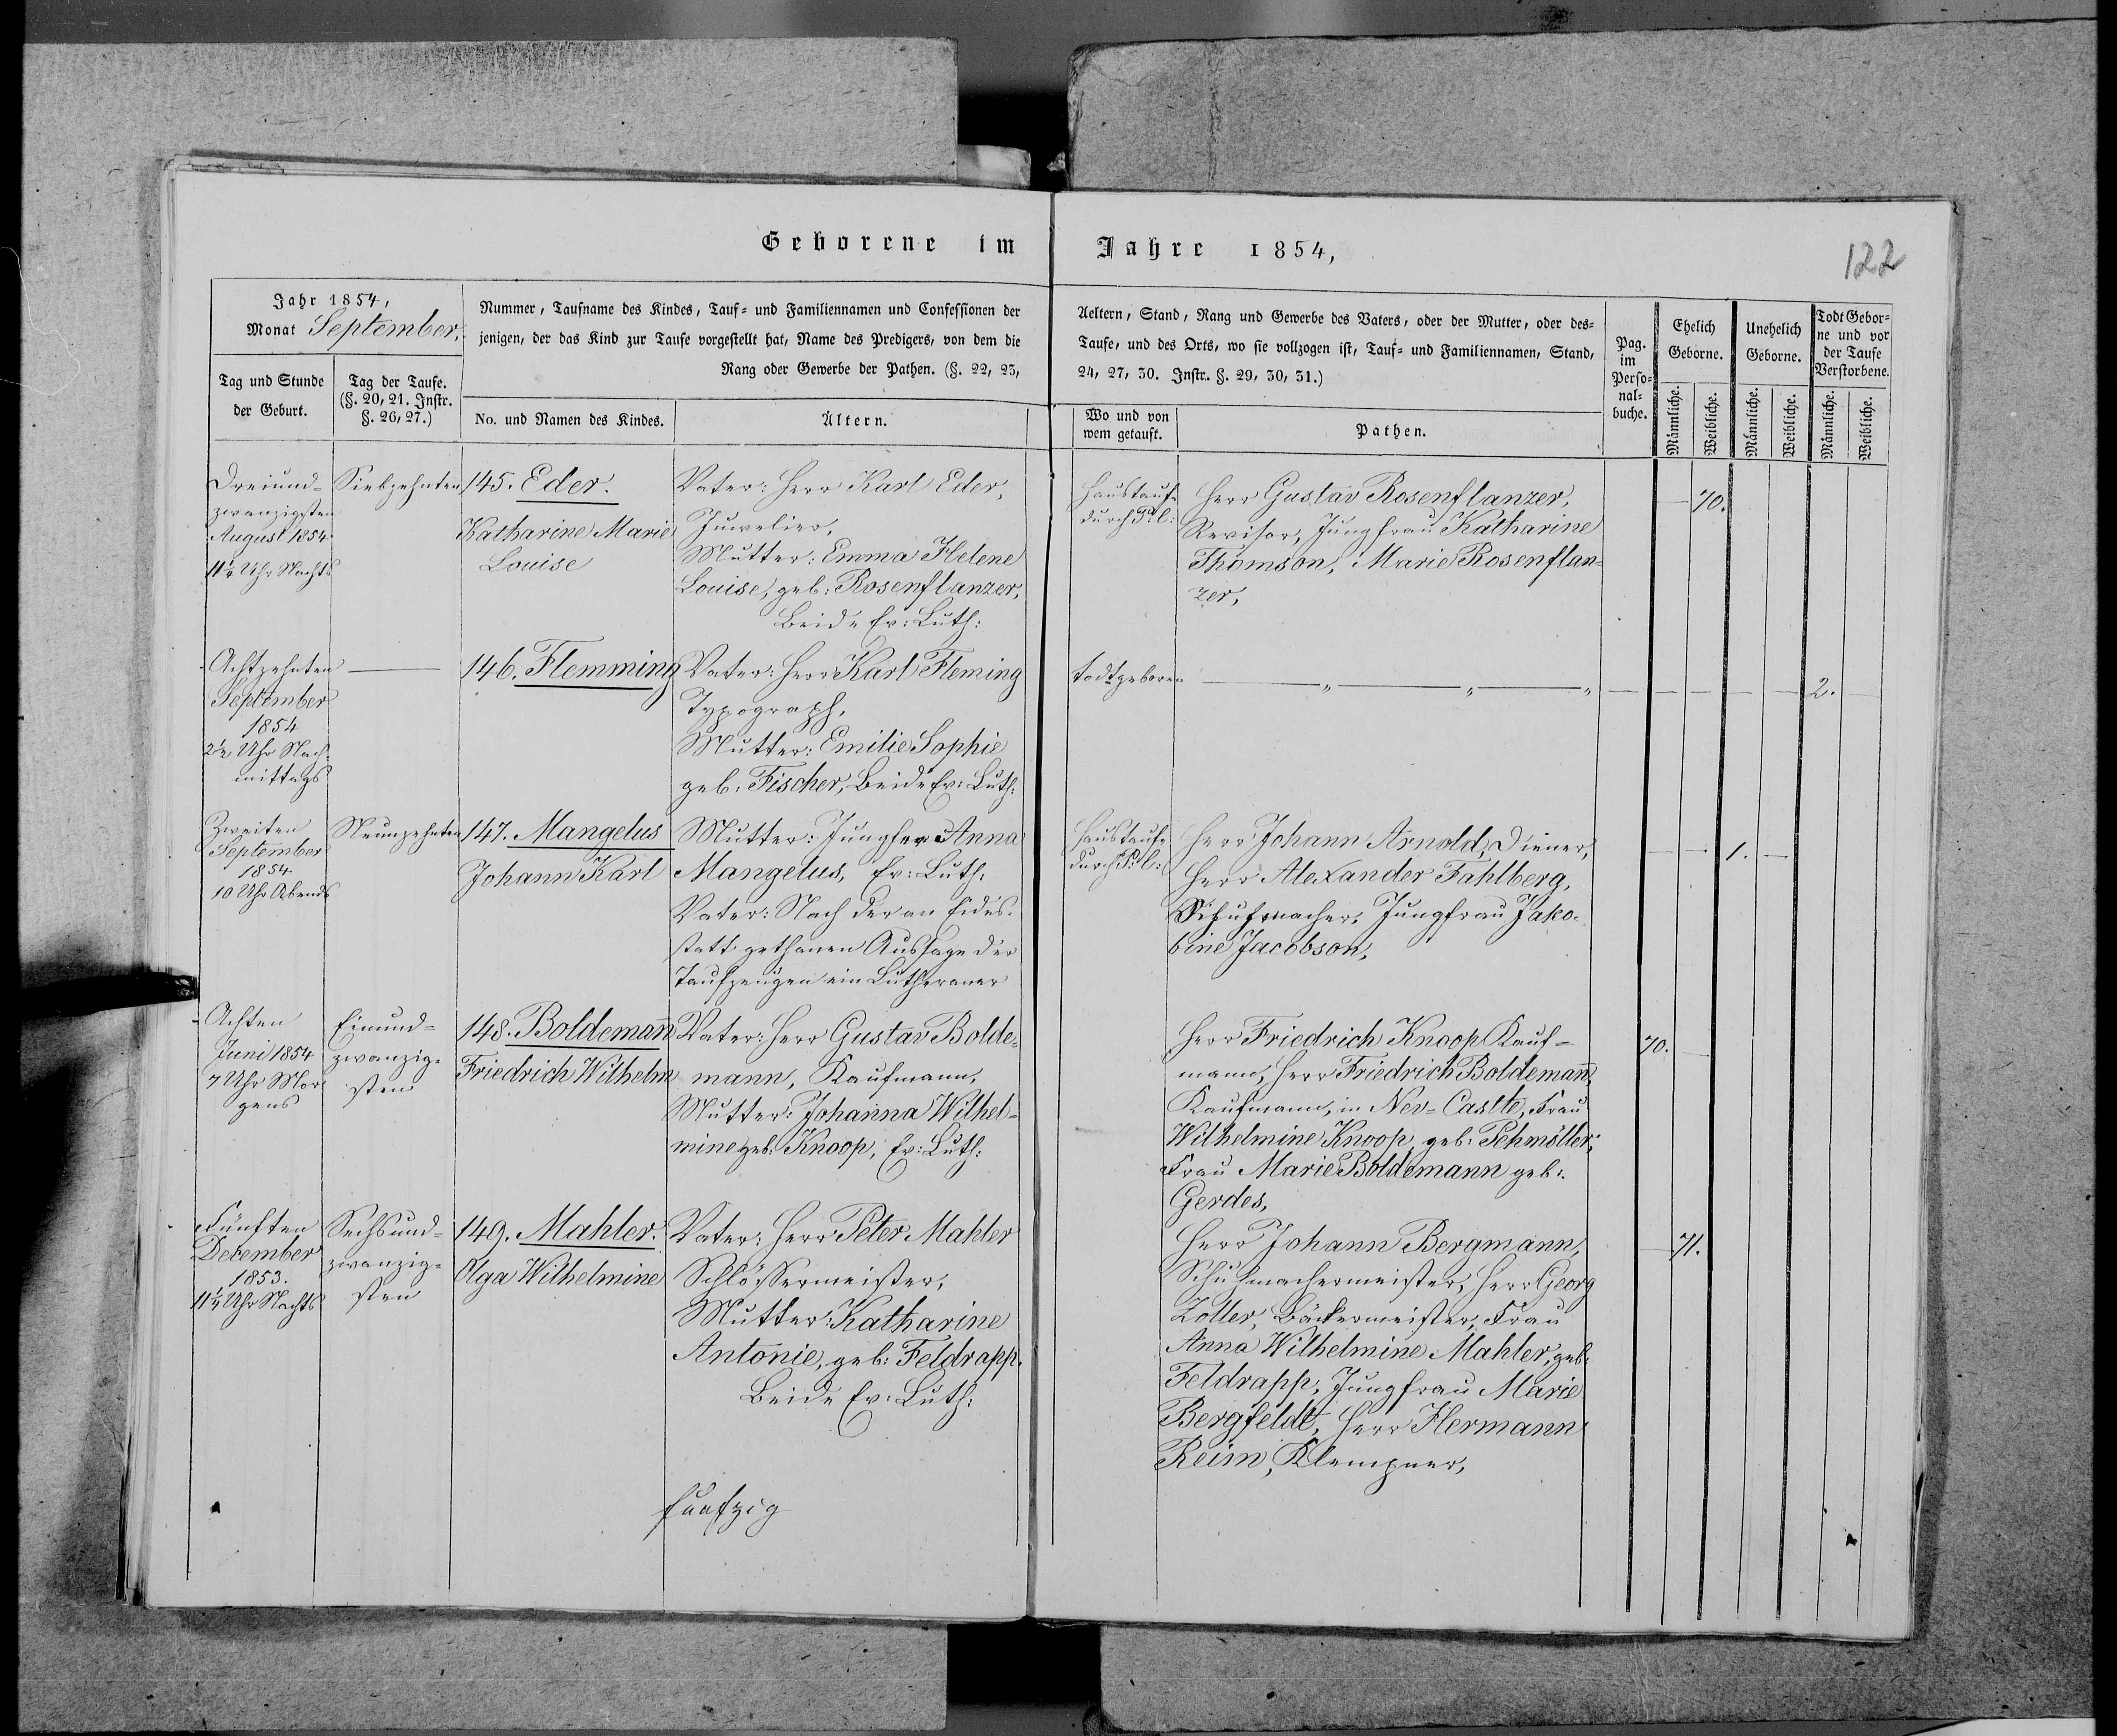 Geborene im Jahre 1854,
122
Jahr 1854,
Monat September.
Tag und Stunde
der Geburt.
Tag der Taufe.
(§. 20, 21. Instr.
§. 26, 27.)
Nummer, Taufname des Kindes, Tauf- und Familiennamen und Confessionen der
jenigen, der das Kind zur Taufe vorgestellt hat, Name des Predigers, von dem die
Rang oder Gewerbe der Pathen. (§. 22, 23,
No. und Namen des Kindes.
Ältern.
Aeltern, Stand, Rang und Gewerbe des Vaters, oder der Mutter, oder des-
Taufe, und des Orts, wo sie vollzogen ist, Tauf- und Familiennamen, Stand,
24, 27, 30. Instr. §. 29, 30, 31.)
Wo und von
wem getauft.
Pathen.
Pag.
im
Perso-
nal-
buche.
Ehelich
Geborne.
Männliche.
Weibliche.
Unehelich
Geborne.
Männliche.
Weibliche.
Todt Gebor-
ne und vor
der Taufe
Verstorbene.
Männliche.
Weibliche.
Dreiund-
zwanzigsten
August 1854
11½ Uhr Nachts
Siebzehnten
145. Eder.
Katharine Marie
Louise
Vater: Herr Karl Eder,
Juwelier,
Mutter: Emma Helene
Louise, geb: Rosenflanzer,
Beide Ev: Luth:
Haustaufe
durch P: C:
Herr Gustav Rosenflanzer,
Revisor, Jungfrau Katharine
Thomson, Marie Rosenflan-
zer,
70.
Achtzehnten
September
1854
2½ Uhr Nach-
mittags
146. Flemming
Vater: Herr Karl Fleming
Typograph,
Mutter: Emilie Sophie
geb: Fischer, Beide Ev: Luth:
todtgeboren
2.
Zweiten
September
1854
10 Uhr Abends
Neunzehnten
147. Mangelus
Johann Karl
Mutter: Jungfer Anna
Mangelus, Ev: Luth.
Vater: Nach der an Eides-
statt gethanen Aussage der
Taufzeugen ein Lutheraner
Haustaufe
durch P: C:
Herr Johann Arnold, Diener,
Herr Alexander Fahlberg,
Schuhmacher, Jungfrau Jako-
bine Jacobson,
1.
Achten
Juni 1854
7 Uhr Mor
gens
Einund-
zwanzig-
sten
148. Boldemañ
Friedrich Wilhelm
Vater: Herr Gustav Bolde-
mann, Kaufmann,
Mutter: Johanna Wilhel-
mine geb: Knoop, Ev: Luth:
Herr Friedrich Knoop Kauf-
mann, Herr Friedrich Boldemañ,
Kaufmann, in New-Castle, Frau
Wilhelmine Knoop, geb: Pehmöller;
Frau Marie Boldemann geb:
Gerdes,
70.
Fünften
Dezember
1853.
11½ Uhr Nachts
Sechsund-
zwanzig-
sten
149. Mahler.
Olga Wilhelmine
Vater: Herr Peter Mahler
Schlössermeister,
Mutter: Katharine
Antonie, geb: Feldrapp.
Beide Ev: Luth:
Herr Johann Bergmann,
Schuhmachermeister, Herr Georg
Zoller, Bäckermeister, Frau
Anna Wilhelmine Mahler, geb:
Feldrapp, Jungfrau Marie
Bergfeldt, Herr Hermann
Reim, Klempner,
71.
fünfzig